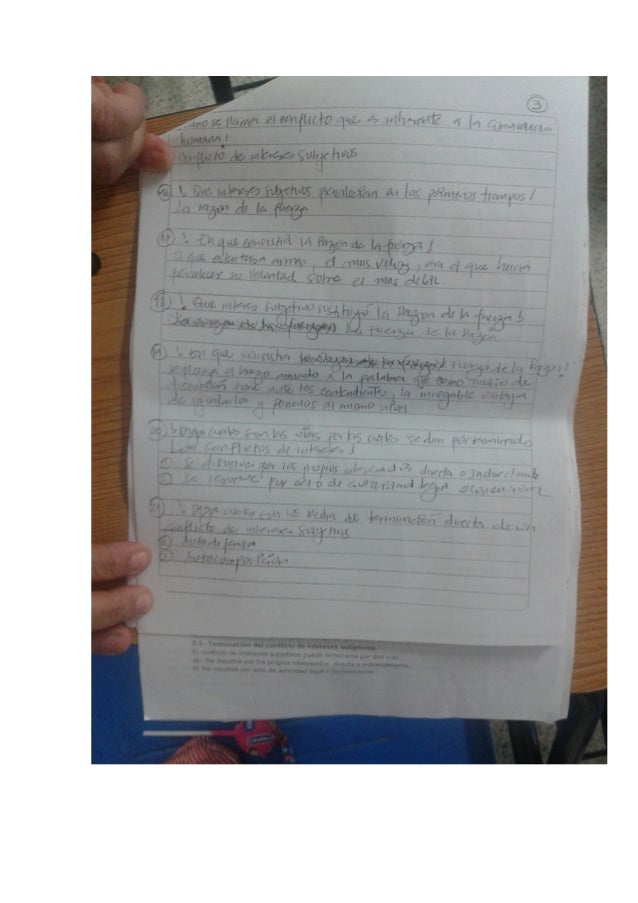 3
se llama el conflicto que es inherente a la convivencia
humana!
Conflicto de intereses Subjetivos
¿ Que intereses subjetivos prevalecian en los primeros tiempos!
La razon de la fuerza
17 ¿ En que consistia la Razon de la fuerza!
el mas veloz, era el que hacia
prevalecer su voluntad sobre el mas debil
18 ¿ Que interes subjetivo sustituyó la Razon de la fuerza!
La Fuerza de la Razon
19 ¿ En que consistia Fuerza de la Razon!
el brazo armado x la palabra que como medio de
discusión tiene ante los contendientes, la innegable ventaja
de igualarlos y ponerlos al mismo nivel
20 ¿ Diga cuales son las vias por las cuales se dan por terminado
Los Conflictos de intereses!
① Se disuelve por los propios interesados directa o indirectamente
② Se resuelve por acto de autoridad legal o convencional
21 ¿ Diga cuales son los Medios de terminación directa de un
conflicto de intereses Subjetivos
① Autodefensa
② Autocomposición
3.3.- Terminación del conflicto de intereses subjetivos.-
El conflicto de intereses subjetivos puede terminarse por dos vías:
a).- Se resuelve por los propios interesados, directa o indirectamente.
b).- Se resuelve por acto de autoridad legal o convencional